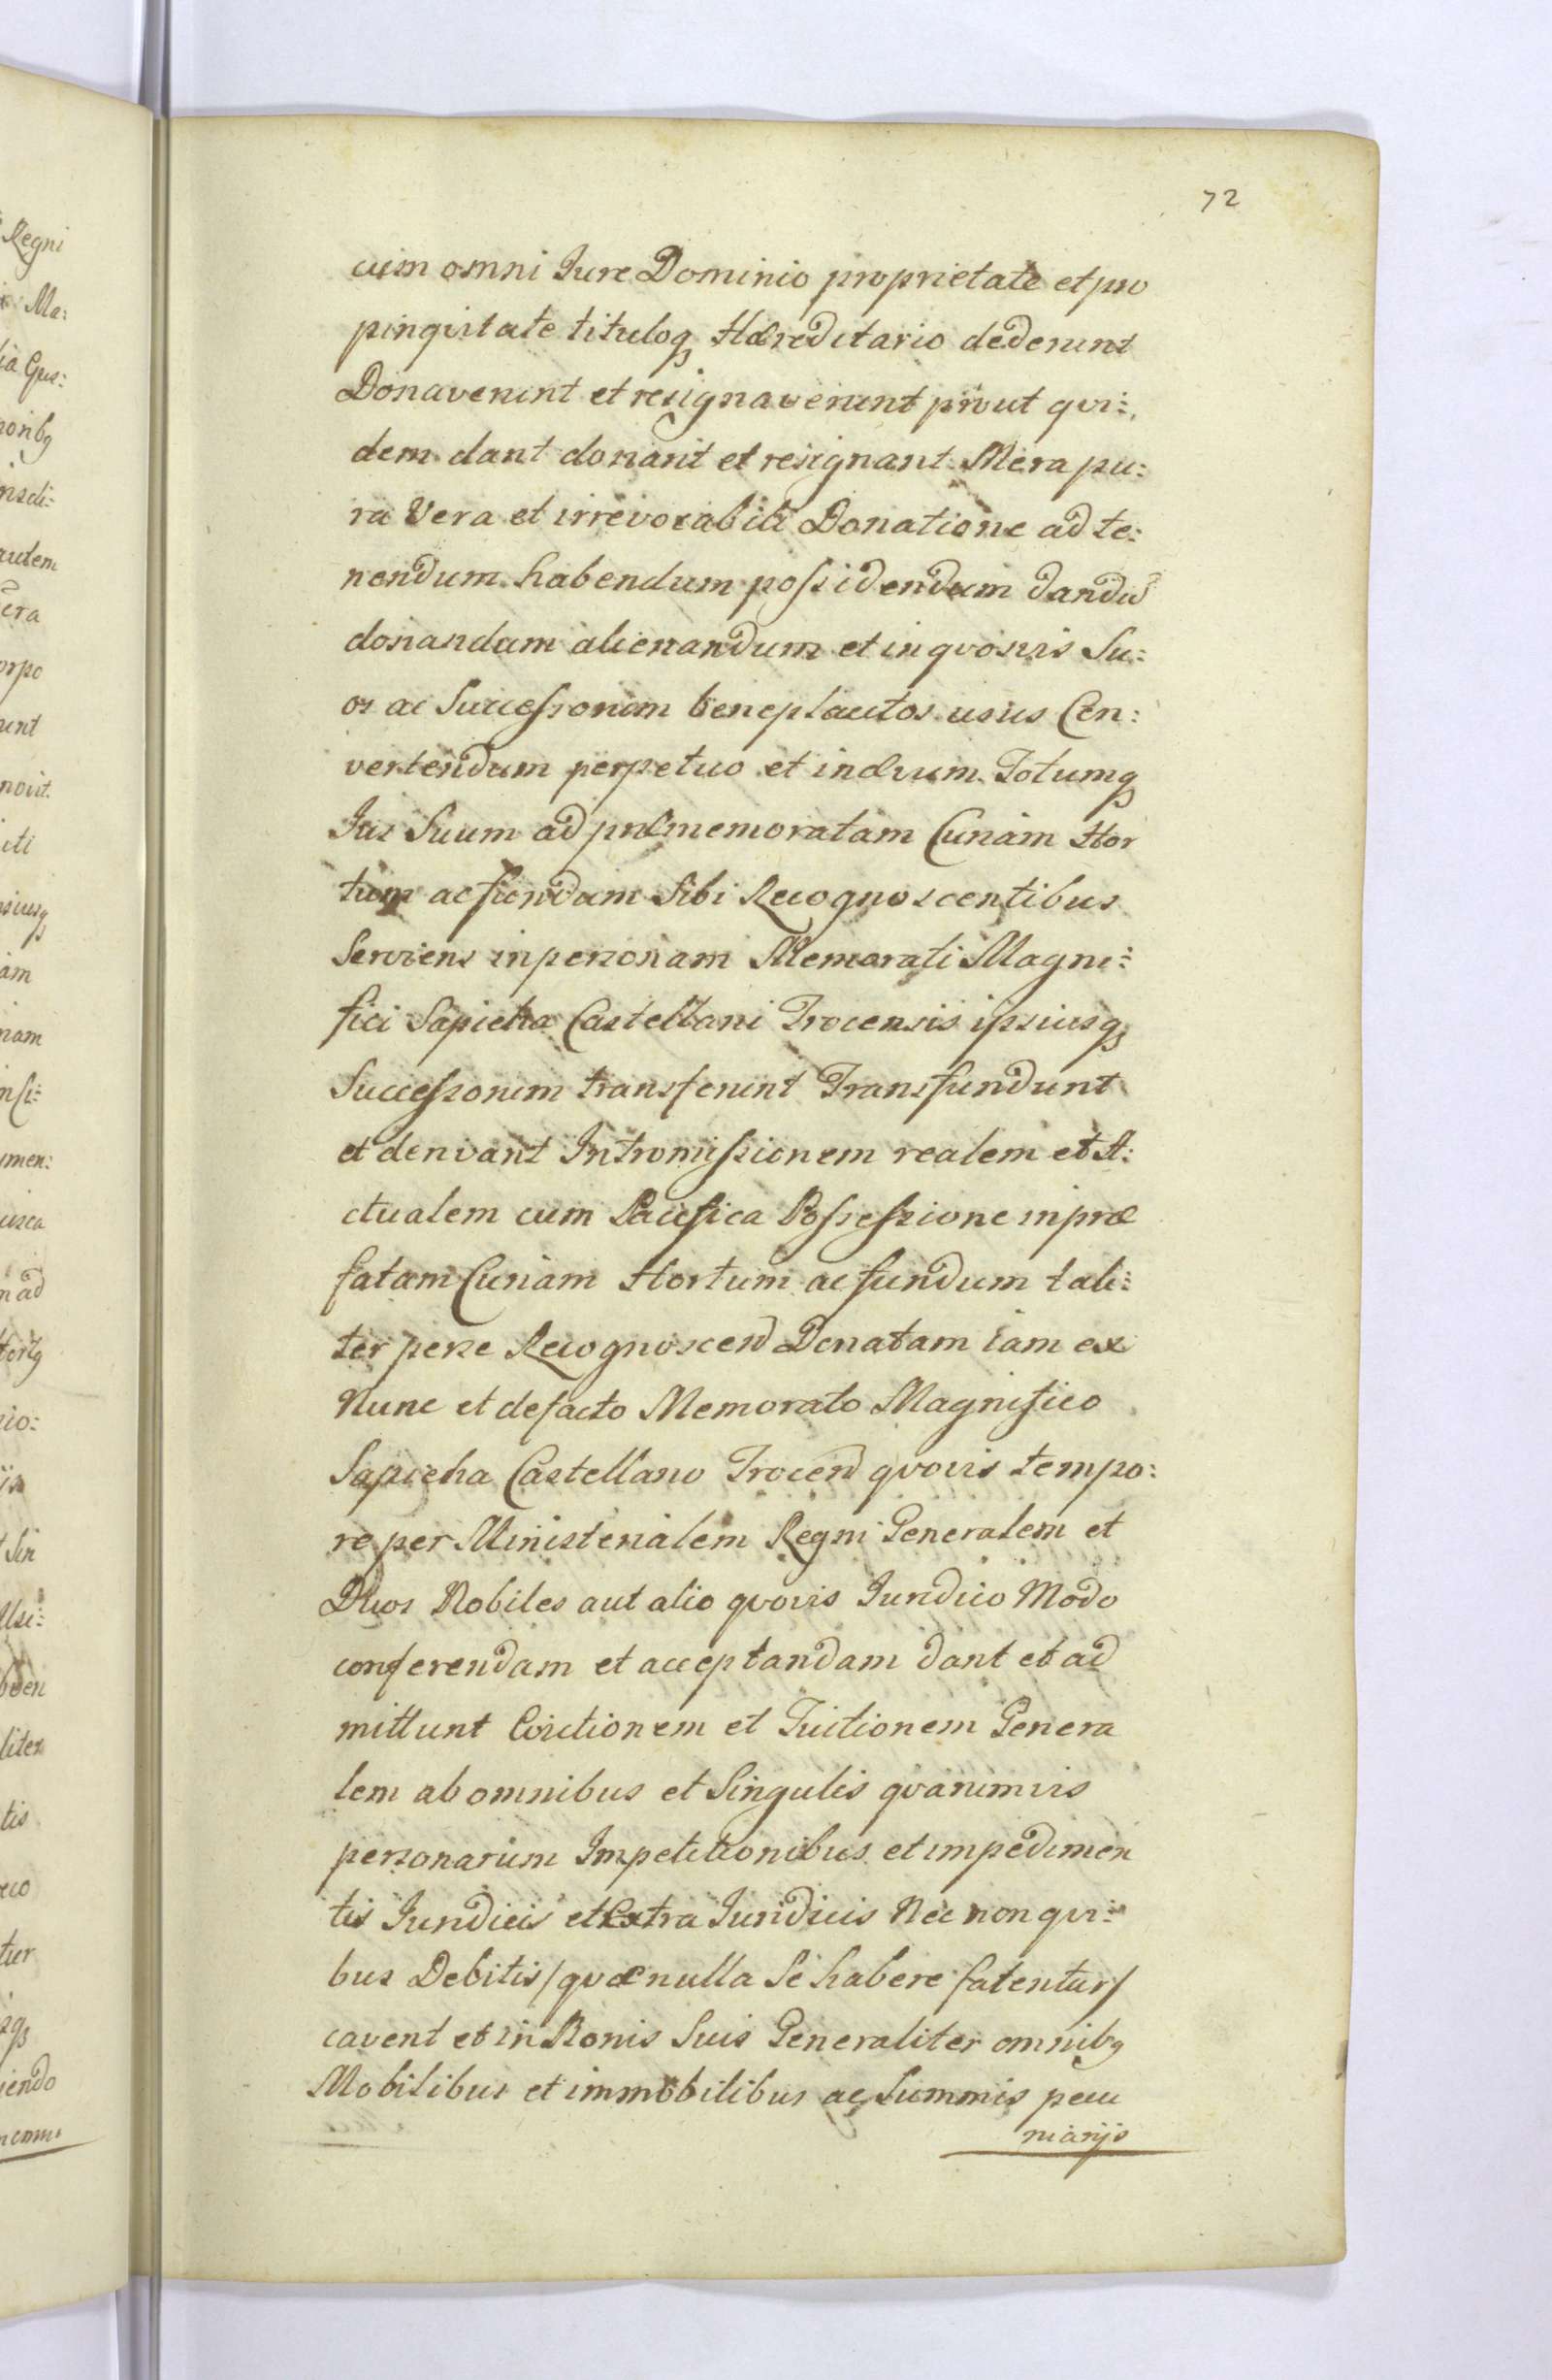 72
cum omni Jure Dominio proprietate et pro
pinqvitate tituloq Hæreditario dederunt
Donaverunt et resignaverunt prout qvi:
dem dant donant et resignant Mera pu:
ra Vera et irrevocabili Donatione ad te:
nendum habendum possidendum dandū
donandum alienandum et in qvosvis Su:
os ac Successorum beneplacitos usus Con:
vertendum perpetuo et in ævum Totumq
Jus Suum ad præmemoratam Curiam Hor
tum ac fundum Sibi Recognoscentibus
Serviens in personam Memorati Magni:
fici Sapieha Castellani Trocensis ipsiusq
Successorum transferunt Transfundunt
et derivant Intromissionem realem et A:
ctualem cum Pacifica Possessione in præ
fatam Curiam Hortum ac fundum tali:
ter per se Recognoscen Donatam iam ex
Nunc et de facto Memorato Magnifico
Sapieha Castellano Trocen qvovis tempo:
re per Ministerialem Regni Generalem et
Duos Nobiles aut alio qvovis Juridico Modo
conferendam et acceptandam dant et ad
mittunt Evictionem et Tuitionem Genera
lem ab omnibus et Singulis qvarumvis
personarum Impetitionibus et impedimen
tis Juridicis et Extra Juridicis Nec non qvi:
bus Debitis /qvæ nulla Se habere fatentur/
cavent et in Bonis Suis Generaliter omnibq
Mobilibus et immobilibus ac Summis pecu
niarijs
Regni
Ma:
autem
era
orpo
unt
am
nam
men:
n ad
io:
Sin
liter
tis
tur
iendo